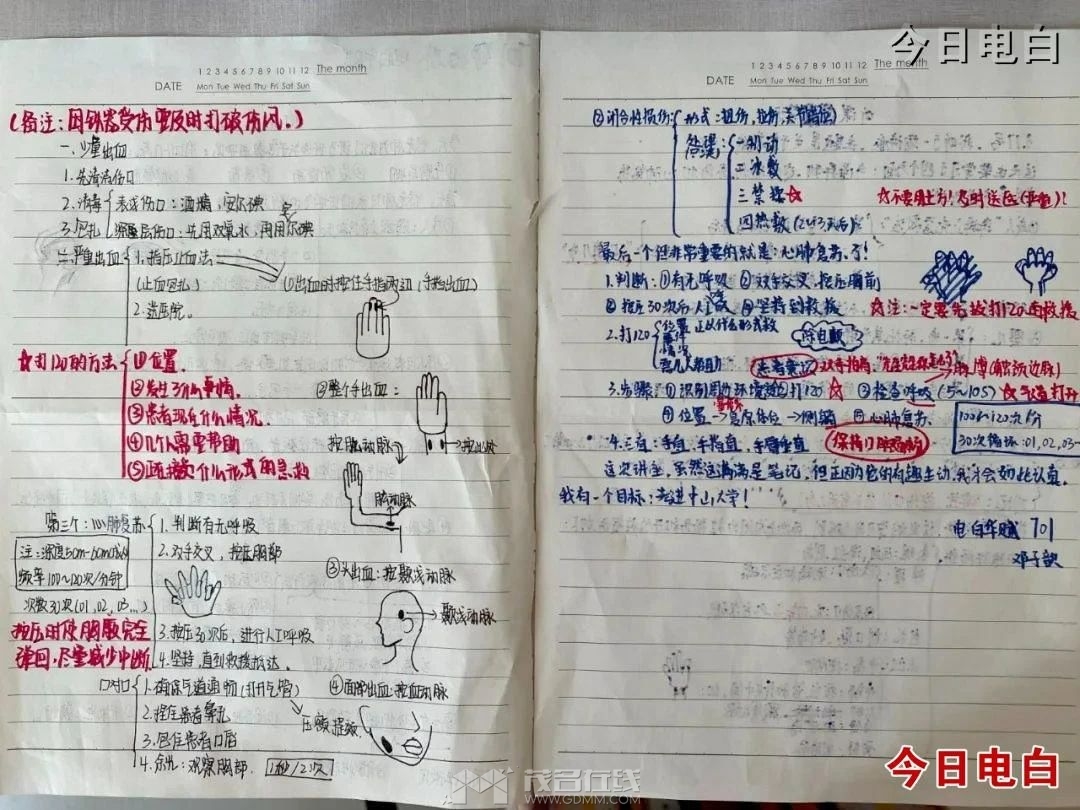 今日电白
1 2 3 4 5 6 7 8 9 10 11 12 The month
DATE Mon Tue Wed Thu Fri Sat Sun
(备注：因锈器受伤要及时打破伤风。)
一、少量出血
1. 先清洗伤口
2. 消毒 表浅伤口：酒精，安尔碘
3. 包扎 深层伤口：先用双氧水，再用尔碘
二、严重出血 1. 指压止血法
(止血包扎) ①出血时按住手指两边 (手指出血)
2. 送医院。
☆打120的方法 ①位置.
②发生了什么事情.
③患者现在什么情况.
④几个需要帮助
⑤正在接受什么形式的急救
②整个手出血：
按肱动脉
肱动脉
第三个：心肺复苏 1. 判断有无呼吸
注：深度5cm-6cm
频率100~120次/分钟
次数30次 (01, 02, 03...)
2. 双手交叉，按压胸部
按压时使胸廓完全
弹回，尽量减少中断
3. 按压30次后，进行人工呼吸
4. 坚持，直到救援抵达。
③头出血：按颞浅动脉
颞浅动脉
④面部出血：按面动脉
口对口 1. 确保气道通畅 (打开气管)
压额提颏
2. 捏住患者鼻孔
3. 包住患者口唇
4. 余光：观察胸部. 1秒/2次
1 2 3 4 5 6 7 8 9 10 11 12 The month
DATE Mon Tue Wed Thu Fri Sat Sun
②闭合性损伤 形式：扭伤，挫伤，关节错位
处理： 一 制动
二 冰敷
三 禁揉☆
四 热敷 (2~3天后)
☆不要用土方! 及时送医(严重)!
最后一个但非常重要的就是：心肺复苏了!
1. 判断：①有无呼吸 ②双手交叉，按压胸前
③按压30次后人工呼吸 ④坚持到救援
☆注：一定要先拨打120再救援
2. 打120 位置 正以什么形式救
事件
情况
除电颤
患者意识 双手拍肩
脉搏(触颈动脉)
3. 步骤：①识别周边环境 ②打120☆ ③检查呼吸 (5~10S) ☆气道打开
④位置→复原体位→侧躺 ⑤心肺复苏.
100~120次/分
30次循环：01,02,03~
4. 三直：手直，手指直，手臂垂直
保持口腔通畅
这次讲座，虽然这满满是笔记，但正因为它的有趣生动，我才会如此认真。
我有一个目标：考进中山大学!
电白华赋 701
邓子歆
茂名在线
WWW.GDMM.COM
今日电白